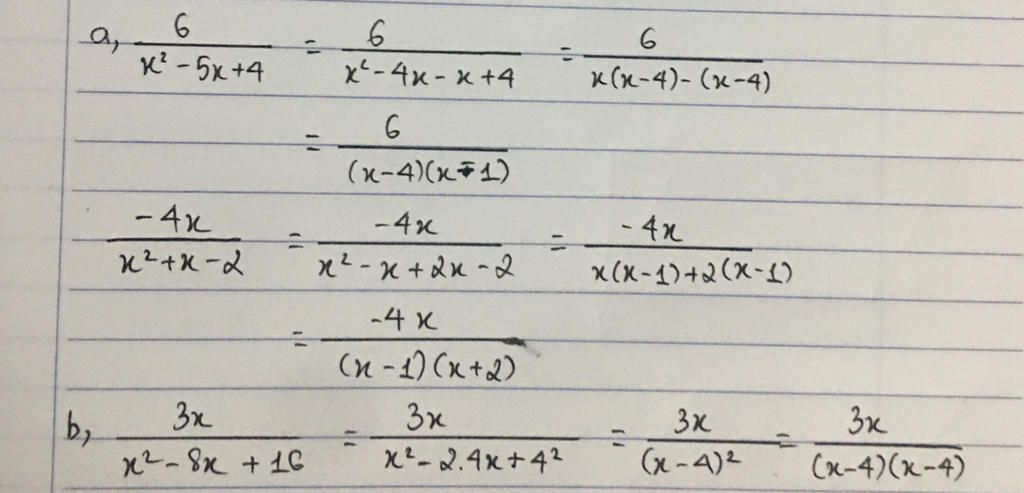 a, 6/(x² - 5x + 4) = 6/(x² - 4x - x + 4) = 6/(x(x-4) - (x-4))
= 6/((x-4)(x-1))
-4x/(x² + x - 2) = -4x/(x² - x + 2x - 2) = -4x/(x(x-1) + 2(x-1))
= -4x/((x-1)(x+2))
b, 3x/(x² - 8x + 16) = 3x/(x² - 2.4x + 4²) = 3x/(x-4)² = 3x/((x-4)(x-4))